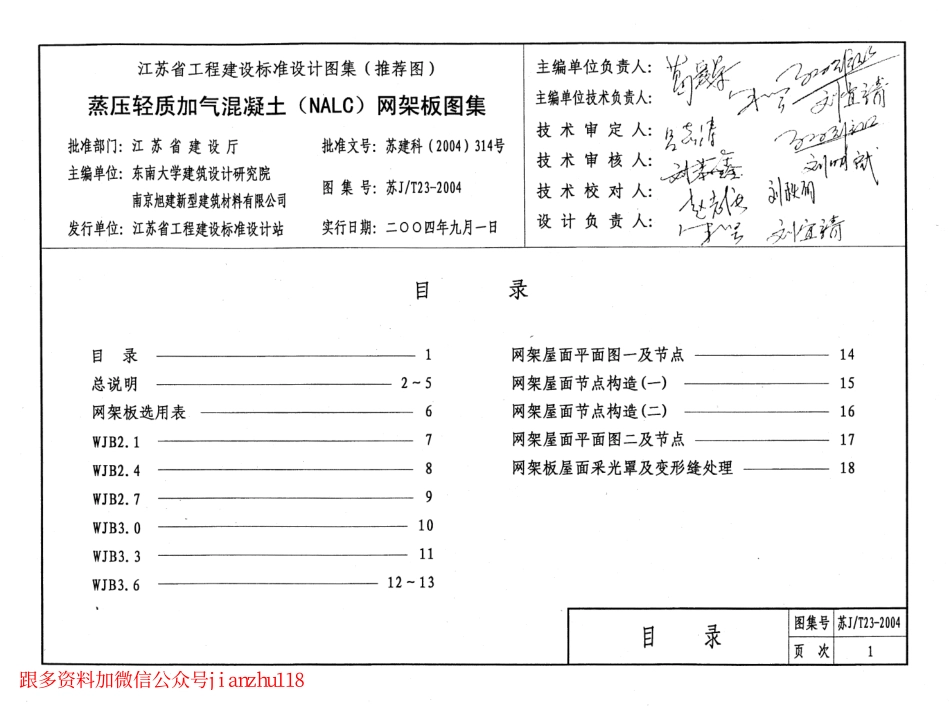 江苏省工程建设标准设计图集(推荐图)
蒸压轻质加气混凝土(NALC)网架板图集
批准部门: 江苏省建设厅
批准文号: 苏建科(2004)314号
主编单位: 东南大学建筑设计研究院
南京旭建新型建筑材料有限公司
图集号: 苏J/T23-2004
发行单位: 江苏省工程建设标准设计站
实行日期: 二〇〇四年九月一日
主编单位负责人:
主编单位技术负责人:
技术审定人:
技术审核人:
技术校对人:
设计负责人:
刘宜靖
目 录
目 录 1
总说明 2~5
网架板选用表 6
WJB2.1 7
WJB2.4 8
WJB2.7 9
WJB3.0 10
WJB3.3 11
WJB3.6 12~13
网架屋面平面图一及节点 14
网架屋面节点构造(一) 15
网架屋面节点构造(二) 16
网架屋面平面图二及节点 17
网架板屋面采光罩及变形缝处理 18
目 录
图集号 苏J/T23-2004
页 次 1
跟多资料加微信公众号jianzhu118